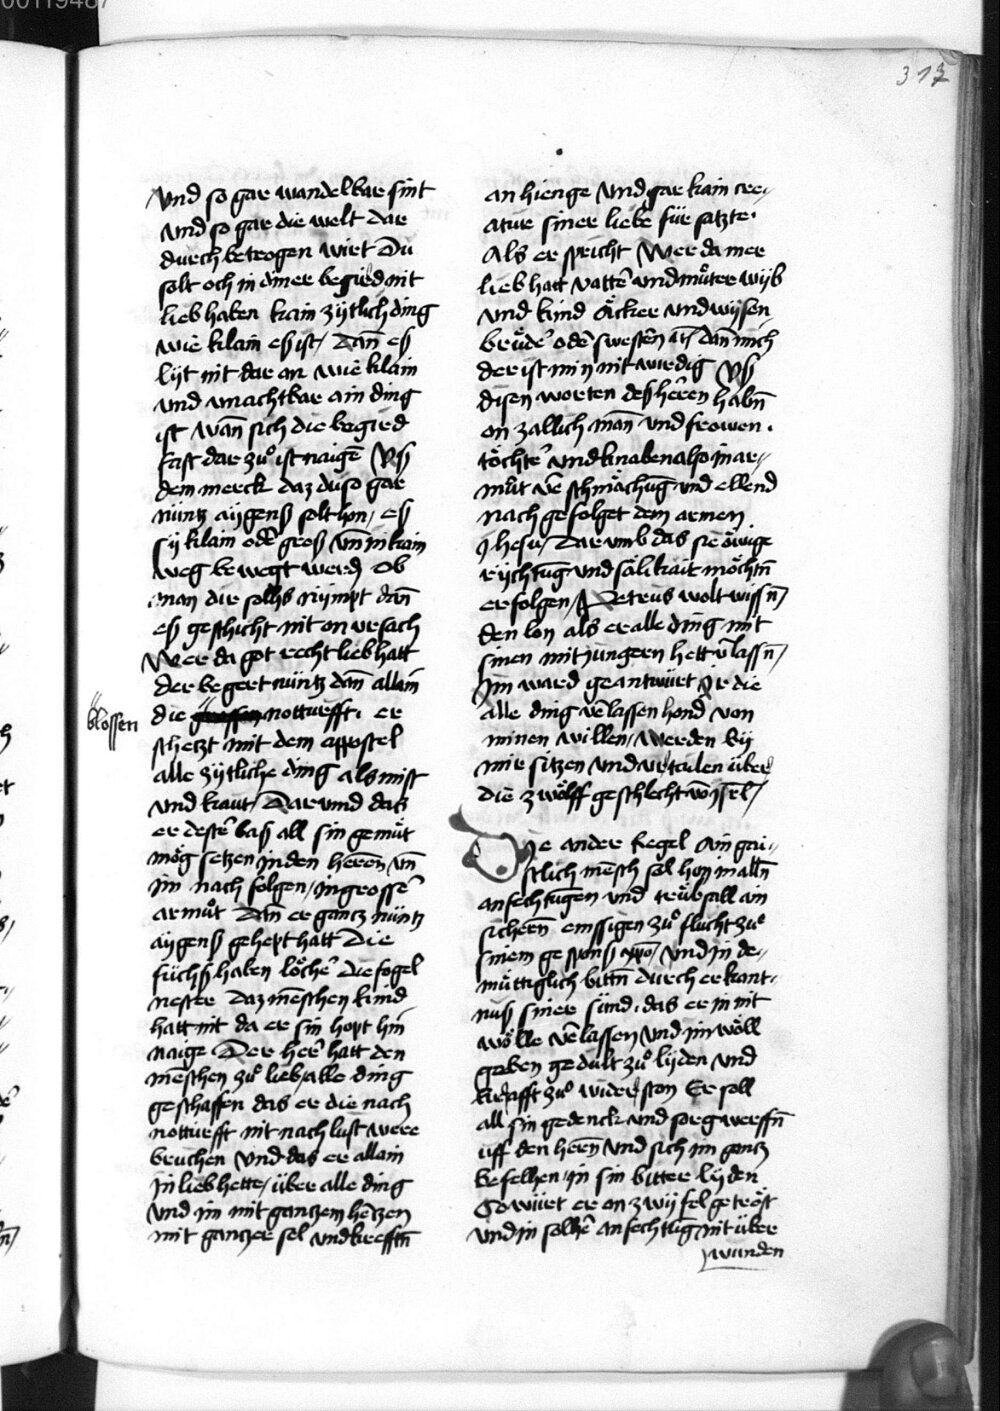 317
Vnd so gar wandelbar sint
vnd so gar die welt dar
durch betrogen wirt Du
solt och in diner begird nit
lieb haben kain zÿtlich ding
wie klain es ist / Dan̄ es
lÿt nit dar an wie klain
vnd vnachtbar ain ding
ist Wan̄ sich die begird
fast dar zuͦ ist naigē Vs
dem merck daz du so gar
nüntz aÿgens solt hon / es
sÿ klain odē groß vn̄ in kain
weg bewegt werd Ob
man dir sollis nÿmpt dan̄
es geschicht nit on vrsach
Wer da got recht lieb hatt
der begert nüntz dan̄ allain
blossen
die notturfft. er
schetzt mit dem appostel
alle zÿtliche ding als mist
vnd kraut / Darumb das
er destē bas all sin gemuͤt
moͤg setzen in den herēn vn̄
im nach folgen / in grossē
armuͦt Dan̄ er gantz nüntz
aÿgens gehept hatt Die
füchs haben loͤchē die fogel
nester Daz mēschen kind
hatt nit da er sin hopt hin
naige Der herr̄ hatt den
mēschen zuͦ lieb alle ding
geschaffen das er die nach
notturfft nit nach lust were
bruchen Vnd das er allain
in lieb hette / über alle ding
vnd im mit gantzem hertzen
mit gantzer sel vnd krefftn̄
an hienge Vnd gar kain cre〃
atur siner liebe für satzte.
Als er spricht Wer da mer
lieb hatt vattē vnd muͦter wÿb
vnd kind aͤcker vnd wÿsen
bruͤdē odē swestēn dan̄ mich
der ist min nit wirdig Vs
disen worten des herēn habn̄
on zallich man̄ vnd frowen.
toͤchtē vnd knaben also in ar〃
muͦt vē schmachūg vnd ellend
nach gefolget dem armen
Jhesu / Dar vmb das sie eͤwige
rÿchtūg vnd saͤlikait moͤchtn̄
erfolgen / Petrus wolt wissn̄ /
den lon als er alle ding mit
sinen mit jungern hett v̄lassn̄ /
Im ward geantwurt Ir die
alle ding vēlassen hond von
minen willen / werden bÿ
mir sitzen vnd vrtailen über
die zwoͤlff geschlecht von jsrl̄ /
Die ander Regel Ain gai〃
stlich mēsch sol hon in alln̄
anfechtūgen vnd truͤbsall ain
sichern̄ emssigen zuͦ flucht zuͦ
sinem gespons xp̄o / Vnd in de〃
muͤttiglich bittn̄ durch erkant〃
nuß siner sünd. das er in nit
woͤlle vēlassen vnd im woͤll
geben gedult zuͦ lÿden vnd
krafft zuͦ widerston Er soll
all sin gedenck vnd sorg werffn̄
uff den herēn vnd sich im gantz
befelhen in sin bitter lÿden
So wirt er on zwÿfel getroͤst
vnd in solhē anfechtūg nit über
wunden